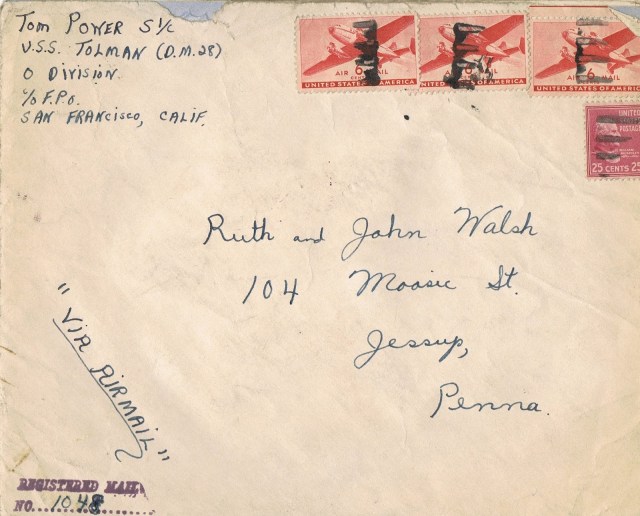 Tom POWER S 1/c
U.S.S. TOLMAN (D.M.28)
O DIVISION
c/o F.P.O.
SAN FRANCISCO, CALIF.
AIR MAIL
UNITED STATES OF AMERICA
NITED STATES OF AMERICA
6
AIR MAIL
UNITED STATES OF AMERICA
UNITED
POSTAGE
25 CENTS 25
Ruth and John Walsh
104 Moosic St.
Jessup,
Penna.
"VIA AIRMAIL"
REGISTERED MAIL
NO. 1048